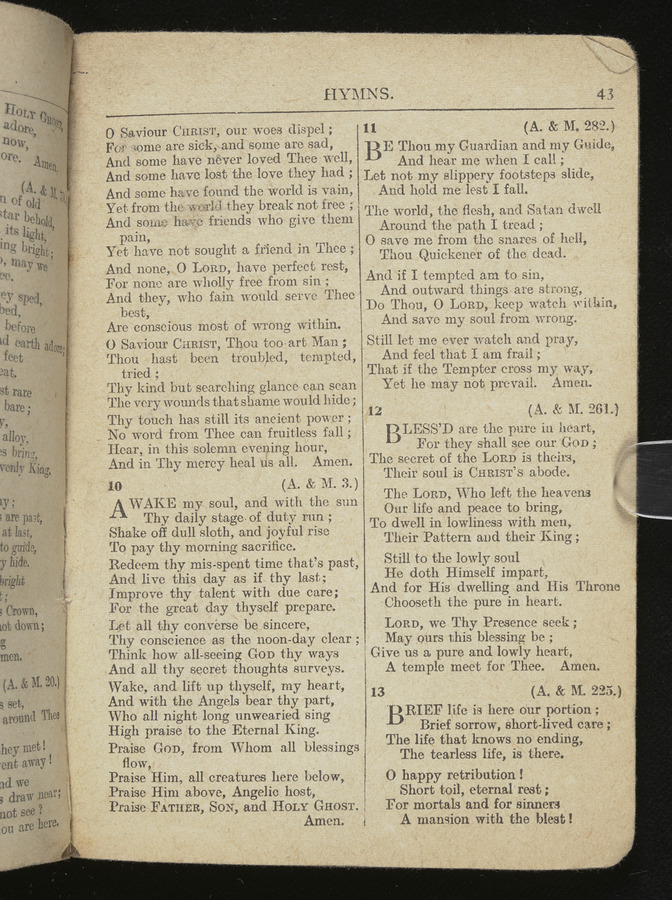 HOLY GHOST,
adore,
now,
ore. Amen.
(A. & M.
n of old
star behold,
its light,
ing bright;
, may we
ey sped,
bed,
before
d earth adore;
feet
eat.
st rare
bare;
y,
alloy,
s bring,
venly King.
y;
s are past,
at last,
to guide,
y hide.
bright
t;
s Crown,
not down;
g
men.
(A. & M. 20.)
s set,
around Thee
hey met!
ent away!
nd we
s draw near;
not see?
ou are here.
HYMNS. 43
O Saviour CHRIST, our woes dispel;
For some are sick, and some are sad,
And some have never loved Thee well,
And some have lost the love they had;
And some have found the world is vain,
Yet from the world they break not free;
And some have friends who give them
pain,
Yet have not sought a friend in Thee;
And none, O LORD, have perfect rest,
For none are wholly free from sin;
And they, who fain would serve Thee
best,
Are conscious most of wrong within.
O Saviour CHRIST, Thou too art Man;
Thou hast been troubled, tempted,
tried;
Thy kind but searching glance can scan
The very wounds that shame would hide;
Thy touch has still its ancient power;
No word from Thee can fruitless fall;
Hear, in this solemn evening hour,
And in Thy mercy heal us all. Amen.
10 (A. & M. 3.)
AWAKE my soul, and with the sun
Thy daily stage of duty run;
Shake off dull sloth, and joyful rise
To pay thy morning sacrifice.
Redeem thy mis-spent time that's past,
And live this day as if thy last;
Improve thy talent with due care;
For the great day thyself prepare.
Let all thy converse be sincere,
Thy conscience as the noon-day clear;
Think how all-seeing GOD thy ways
And all thy secret thoughts surveys.
Wake, and lift up thyself, my heart,
And with the Angels bear thy part,
Who all night long unwearied sing
High praise to the Eternal King.
Praise GOD, from Whom all blessings
flow,
Praise Him, all creatures here below,
Praise Him above, Angelic host,
Praise FATHER, SON, and HOLY GHOST.
Amen.
11 (A. & M. 282.)
BE Thou my Guardian and my Guide,
And hear me when I call;
Let not my slippery footsteps slide,
And hold me lest I fall.
The world, the flesh, and Satan dwell
Around the path I tread;
O save me from the snares of hell,
Thou Quickener of the dead.
And if I tempted am to sin,
And outward things are strong,
Do Thou, O LORD, keep watch within,
And save my soul from wrong.
Still let me ever watch and pray,
And feel that I am frail;
That if the Tempter cross my way,
Yet he may not prevail. Amen.
12 (A. & M. 261.)
BLESS'D are the pure in heart,
For they shall see our GOD;
The secret of the LORD is theirs,
Their soul is CHRIST'S abode.
The LORD, Who left the heavens
Our life and peace to bring,
To dwell in lowliness with men,
Their Pattern and their King;
Still to the lowly soul
He doth Himself impart,
And for His dwelling and His Throne
Chooseth the pure in heart.
LORD, we Thy Presence seek;
May ours this blessing be;
Give us a pure and lowly heart,
A temple meet for Thee. Amen.
13 (A. & M. 225.)
BRIEF life is here our portion;
Brief sorrow, short-lived care;
The life that knows no ending,
The tearless life, is there.
O happy retribution!
Short toil, eternal rest;
For mortals and for sinners
A mansion with the blest!